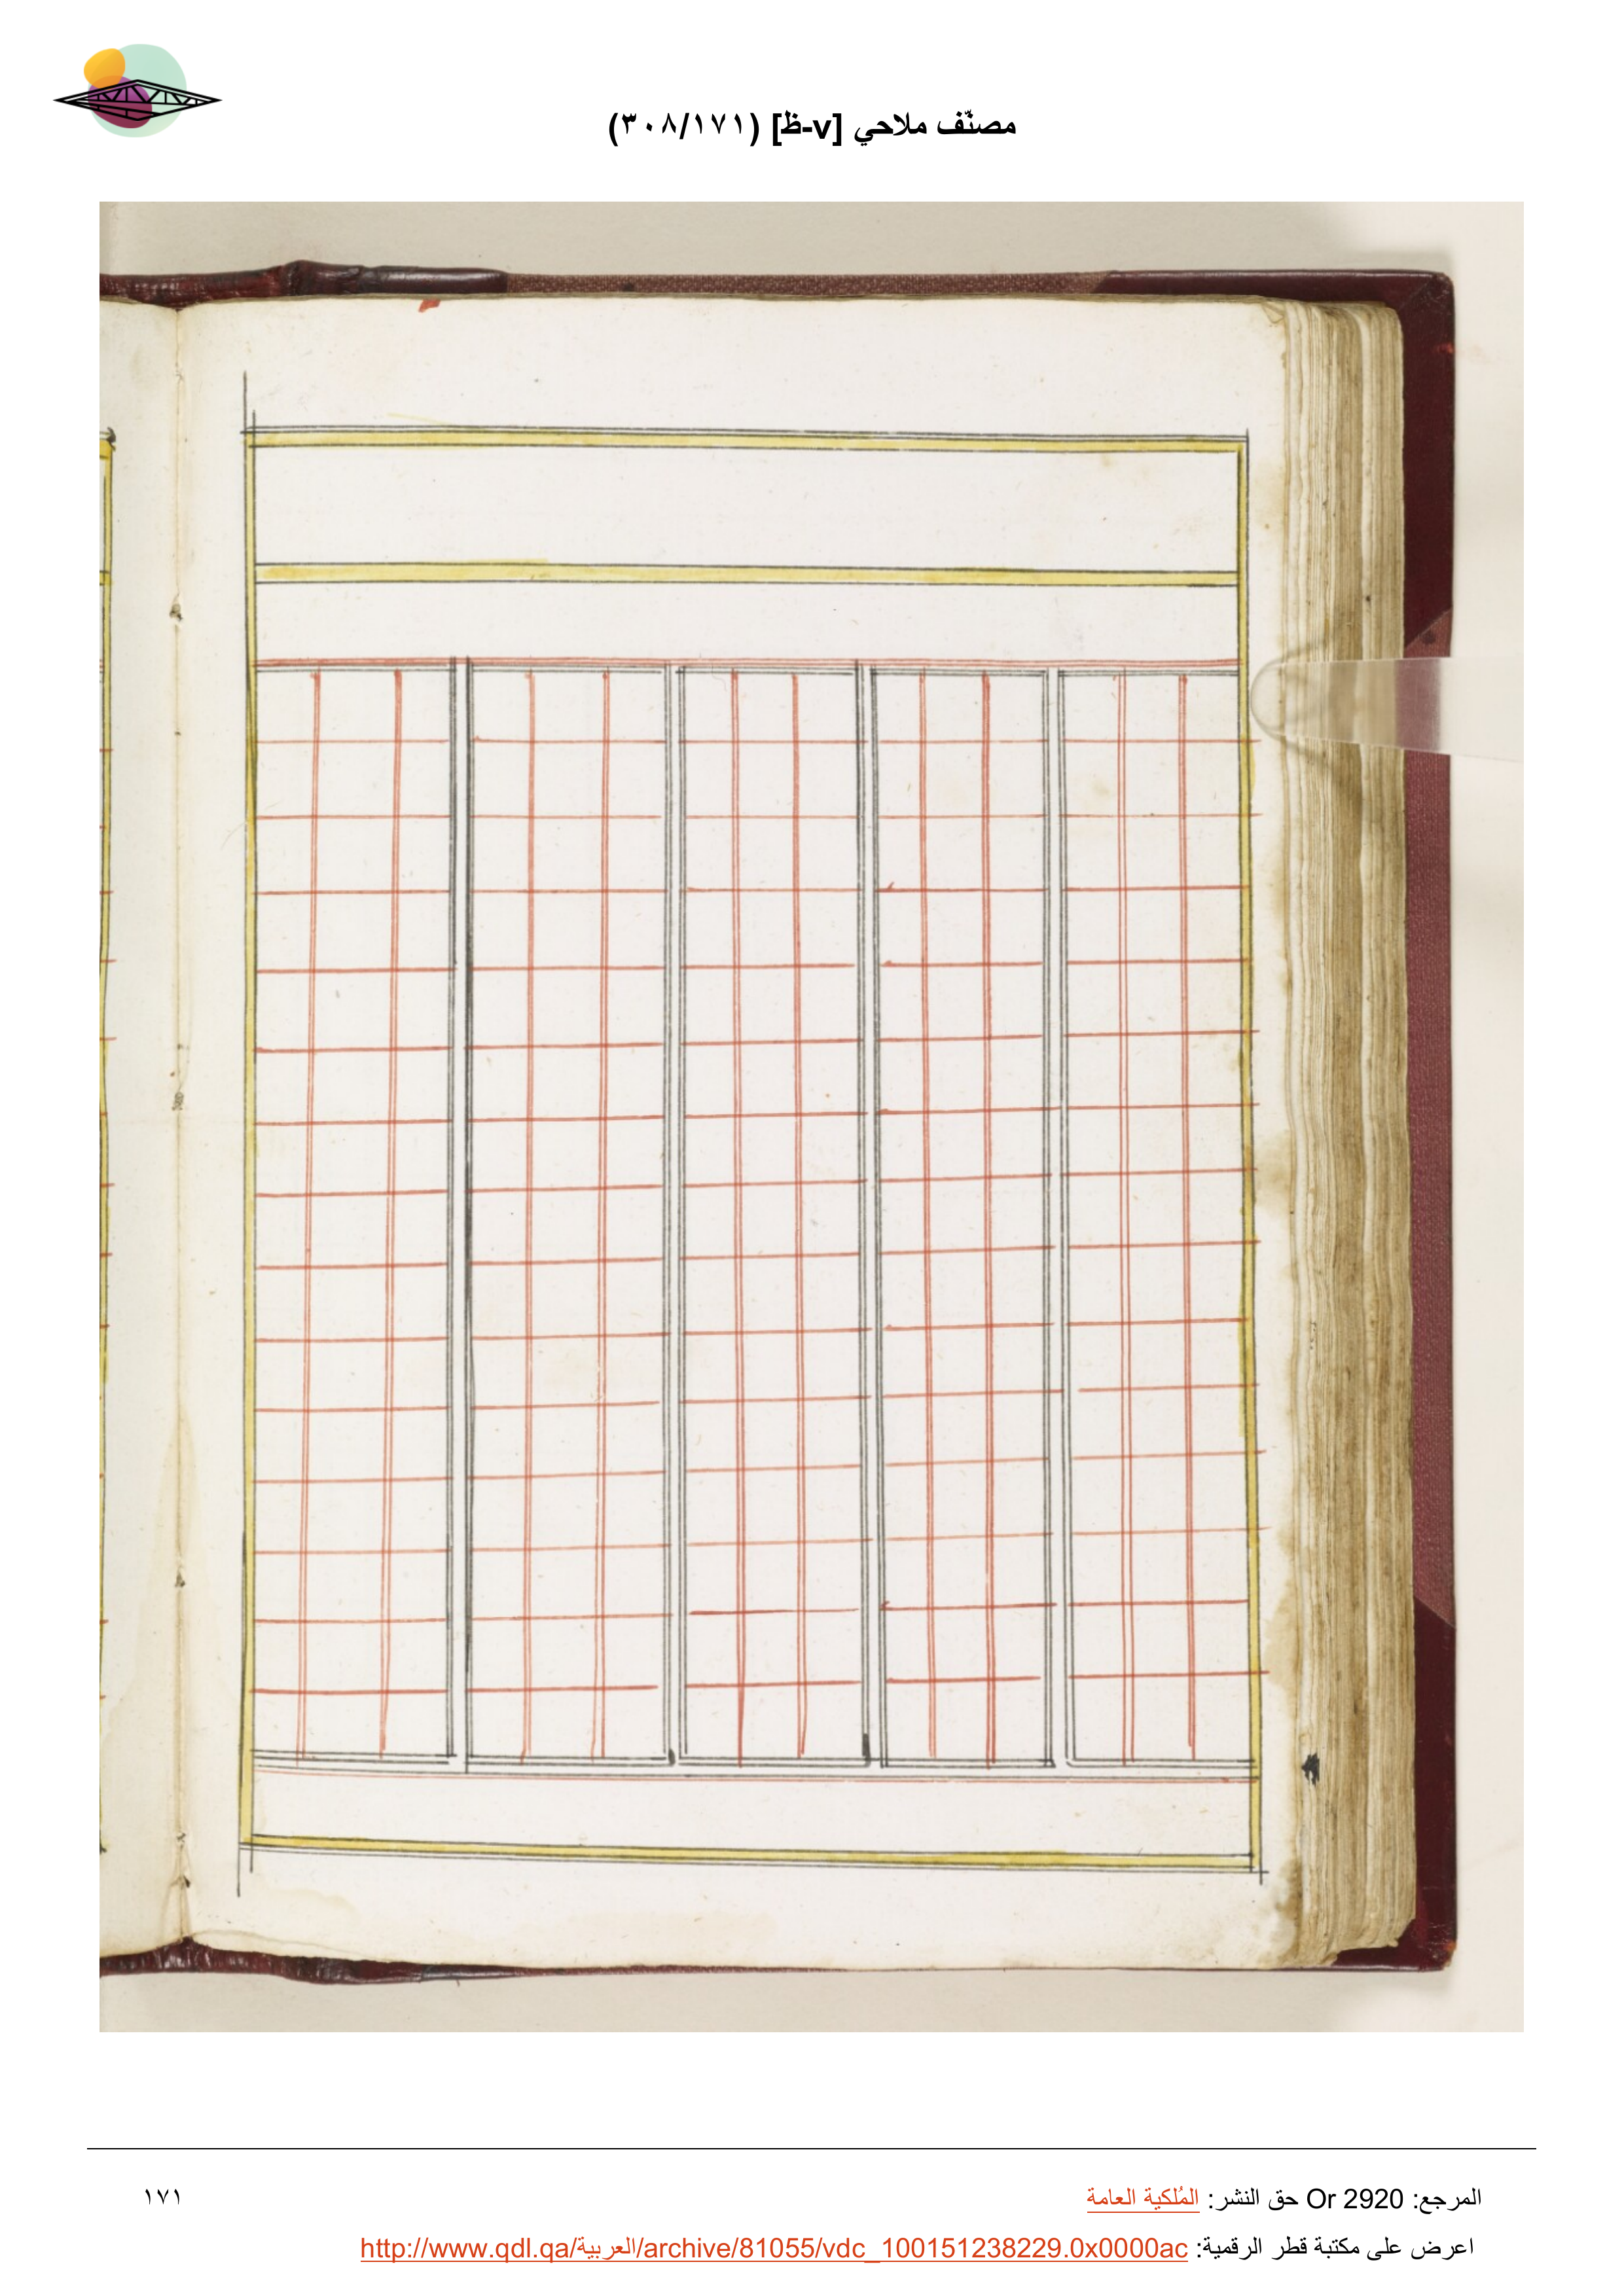 مصنّف ملاحي [v-ظ] (٣٠٨/١٧١)
المرجع: Or 2920 حق النشر: المُلكية العامة
١٧١
اعرض على مكتبة قطر الرقمية: http://www.qdl.qa/العربية/archive/81055/vdc_100151238229.0x0000ac